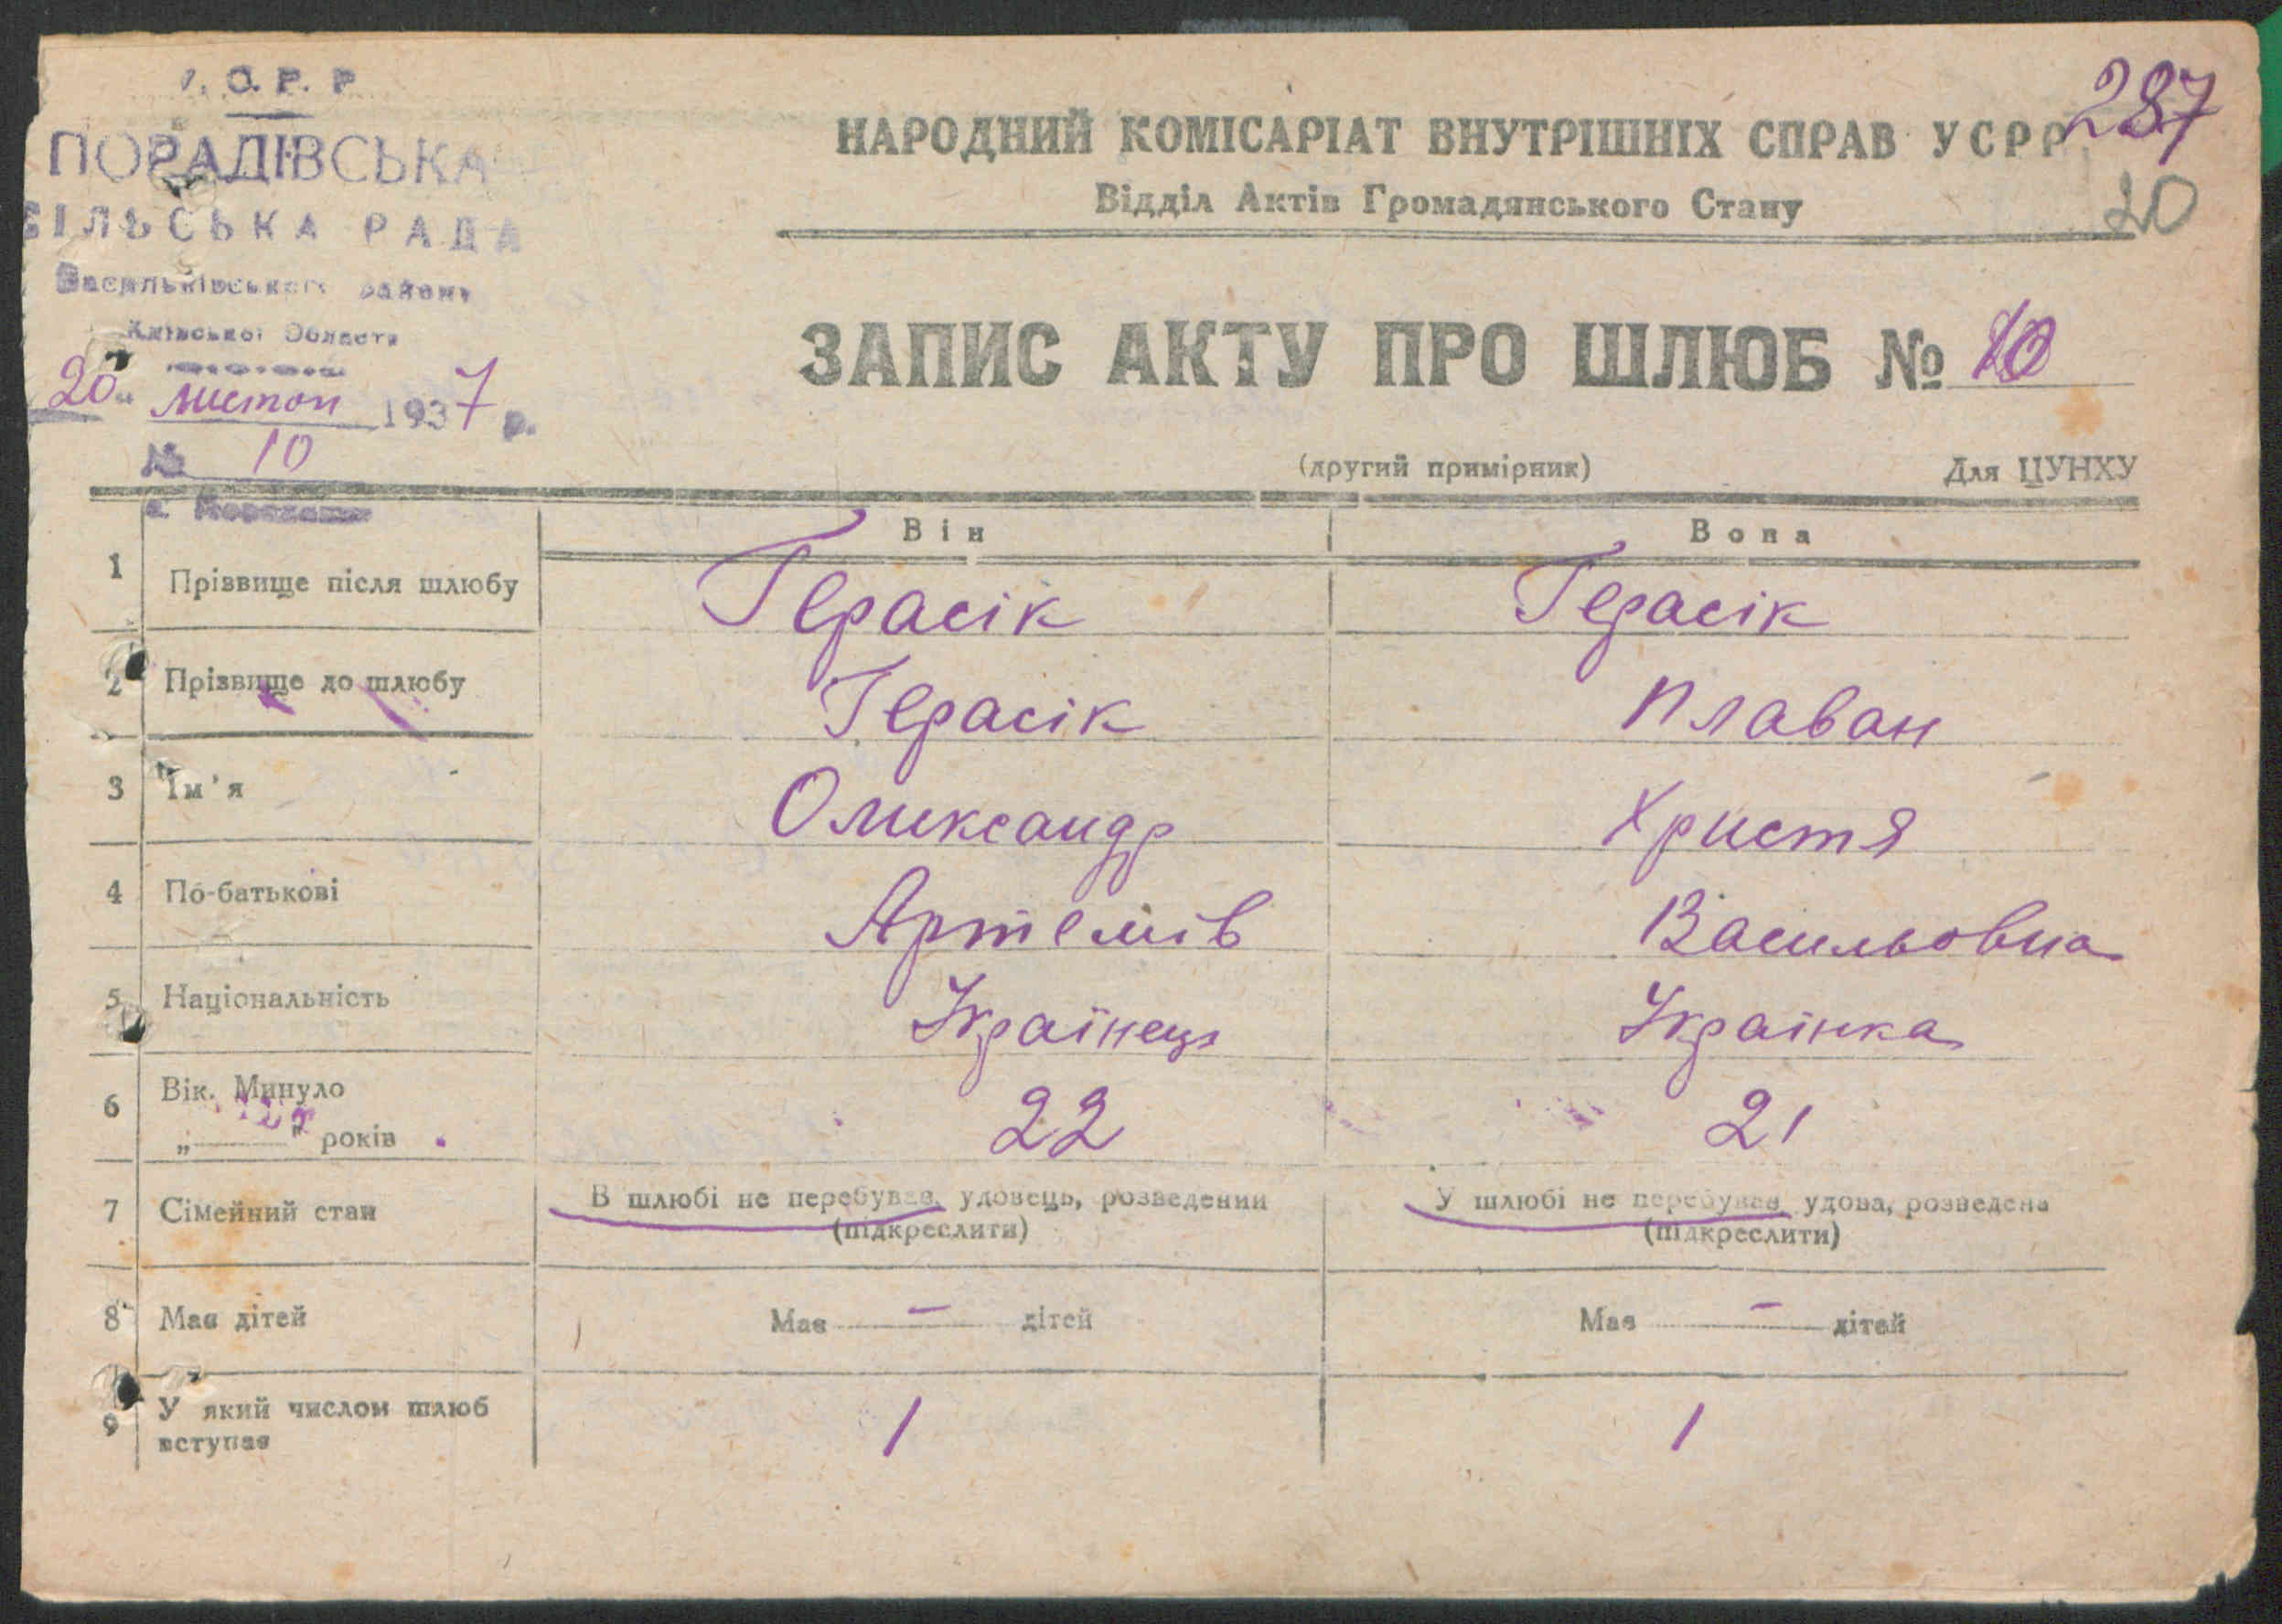 С. Р. Р
ПОРАДІВСЬКА
СІЛЬСЬКА РАДА
Васильківського району
Київської Области
20 листоп 1937 р.
№ 10
287
20
НАРОДНИЙ КОМІСАРІАТ ВНУТРІШНІХ СПРАВ УСРР
Відділ Актів Громадянського Стану
ЗАПИС АКТУ ПРО ШЛЮБ № 10
(другий примірник) Для ЦУНХУ
Він Вона
1 Прізвище після шлюбу Герасік Герасік
2 Прізвище до шлюбу Герасік Плаван
3 Ім'я Олександр Христя
4 По-батькові Артемів Васильовна
5 Національність Українець Українка
6 Вік. Минуло
„ " років 22 21
7 Сімейний стан В шлюбі не перебував, удовець, розведений У шлюбі не перебував, удова, розведена
(підкреслити) (підкреслити)
8 Має дітей Має — дітей Має — дітей
9 У який числом шлюб вступає 1 1